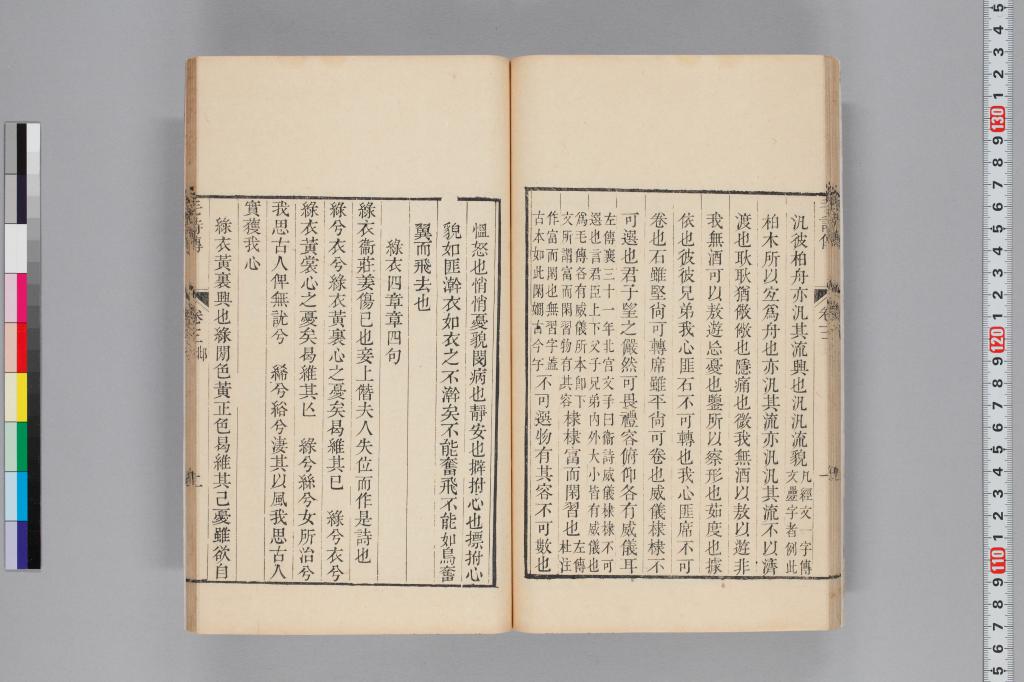 汎彼柏舟亦汎其流興也汎汎流貌凡經文一字傳
文疊字者例此
柏木所以宐爲舟也亦汎其流亦汎汎其流不以濟
渡也耿耿猶儆儆也隱痛也微我無酒以敖以遊非
我無酒可以敖遊忘憂也鑒所以察形也茹度也據
依也彼彼兄弟我心匪石不可轉也我心匪席不可
卷也石雖堅尙可轉席雖平尙可卷也威儀棣棣不
可選也君子望之儼然可畏禮容俯仰各有威儀耳
左傳襄三十一年北宫文子曰衞詩威儀棣棣不可
選也言君臣上下父子兄弟内外大小皆有威儀也
爲毛傳各有威儀所本卽下
文所謂富而閑習物有其容
棣棣富而閑習也左傳
杜注
作富而閑也無習字葢
古本如此閑嫺古今字
不可選物有其容不可數也
慍怒也悄悄憂貌閔病也靜安也擗拊心也摽拊心
貌如匪澣衣如衣之不澣矣不能奮飛不能如鳥奮
翼而飛去也
綠衣四章章四句
綠衣衞莊姜傷己也妾上僭夫人失位而作是詩也
綠兮衣兮綠衣黃裏心之憂矣曷維其已　綠兮衣兮
綠衣黃裳心之憂矣曷維其亾　綠兮絲兮女所治兮
我思古人俾無訧兮　絺兮綌兮淒其以風我思古人
實獲我心
綠衣黃裏興也綠閒色黃正色曷維其已憂雖欲自